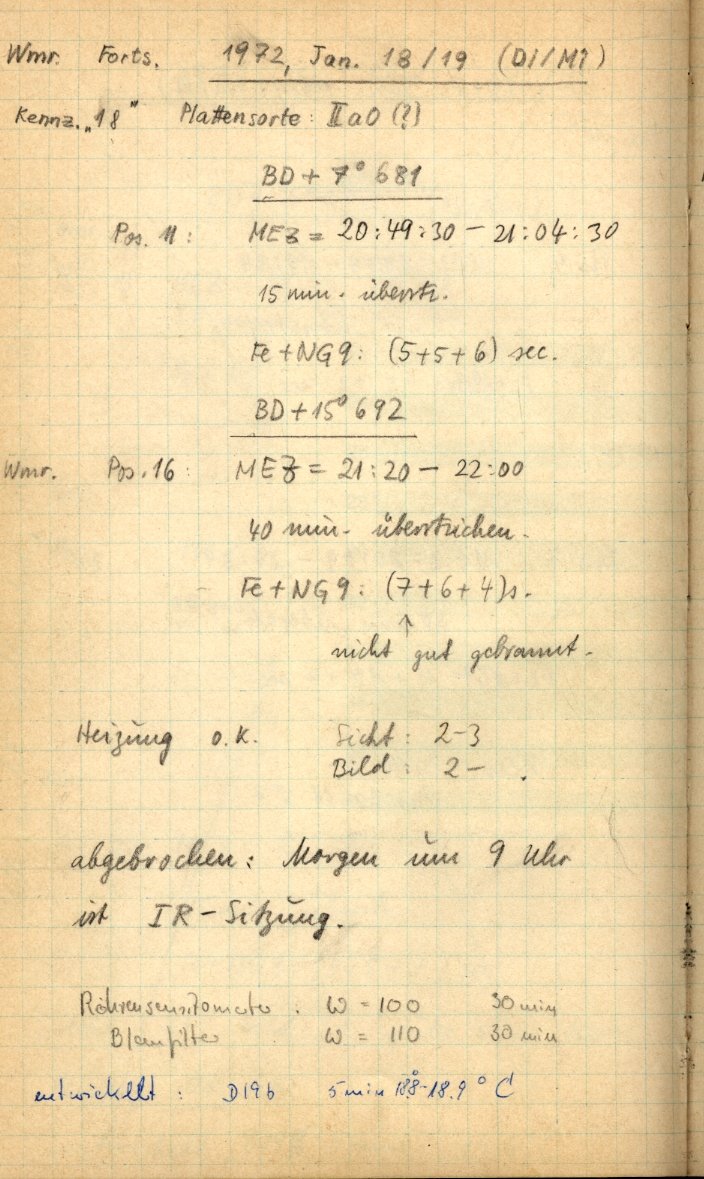 Wmr. Forts. 1972, Jan. 18/19 (Di/Mi)
Kennz. „18" Plattensorte: IIaO (?)
BD + 7° 681
Pos. 11: MEZ = 20:49:30 – 21:04:30
15 min. überstr.
Fe + NG9: (5+5+6) sec.
BD + 15° 692
Wmr. Pos. 16: MEZ = 21:20 – 22:00
40 min. überstrichen.
Fe + NG9: (7+6+4)s.
↑
nicht gut gebrannt.
Heizung o.k. Sicht: 2-3
Bild: 2-
abgebrochen: Morgen um 9 Uhr
ist IR-Sitzung.
Röhrensensitometer: ω = 100 30 min
Blaufilter ω = 110 30 min
entwickelt: D19b 5 min 18.8-18.9°C